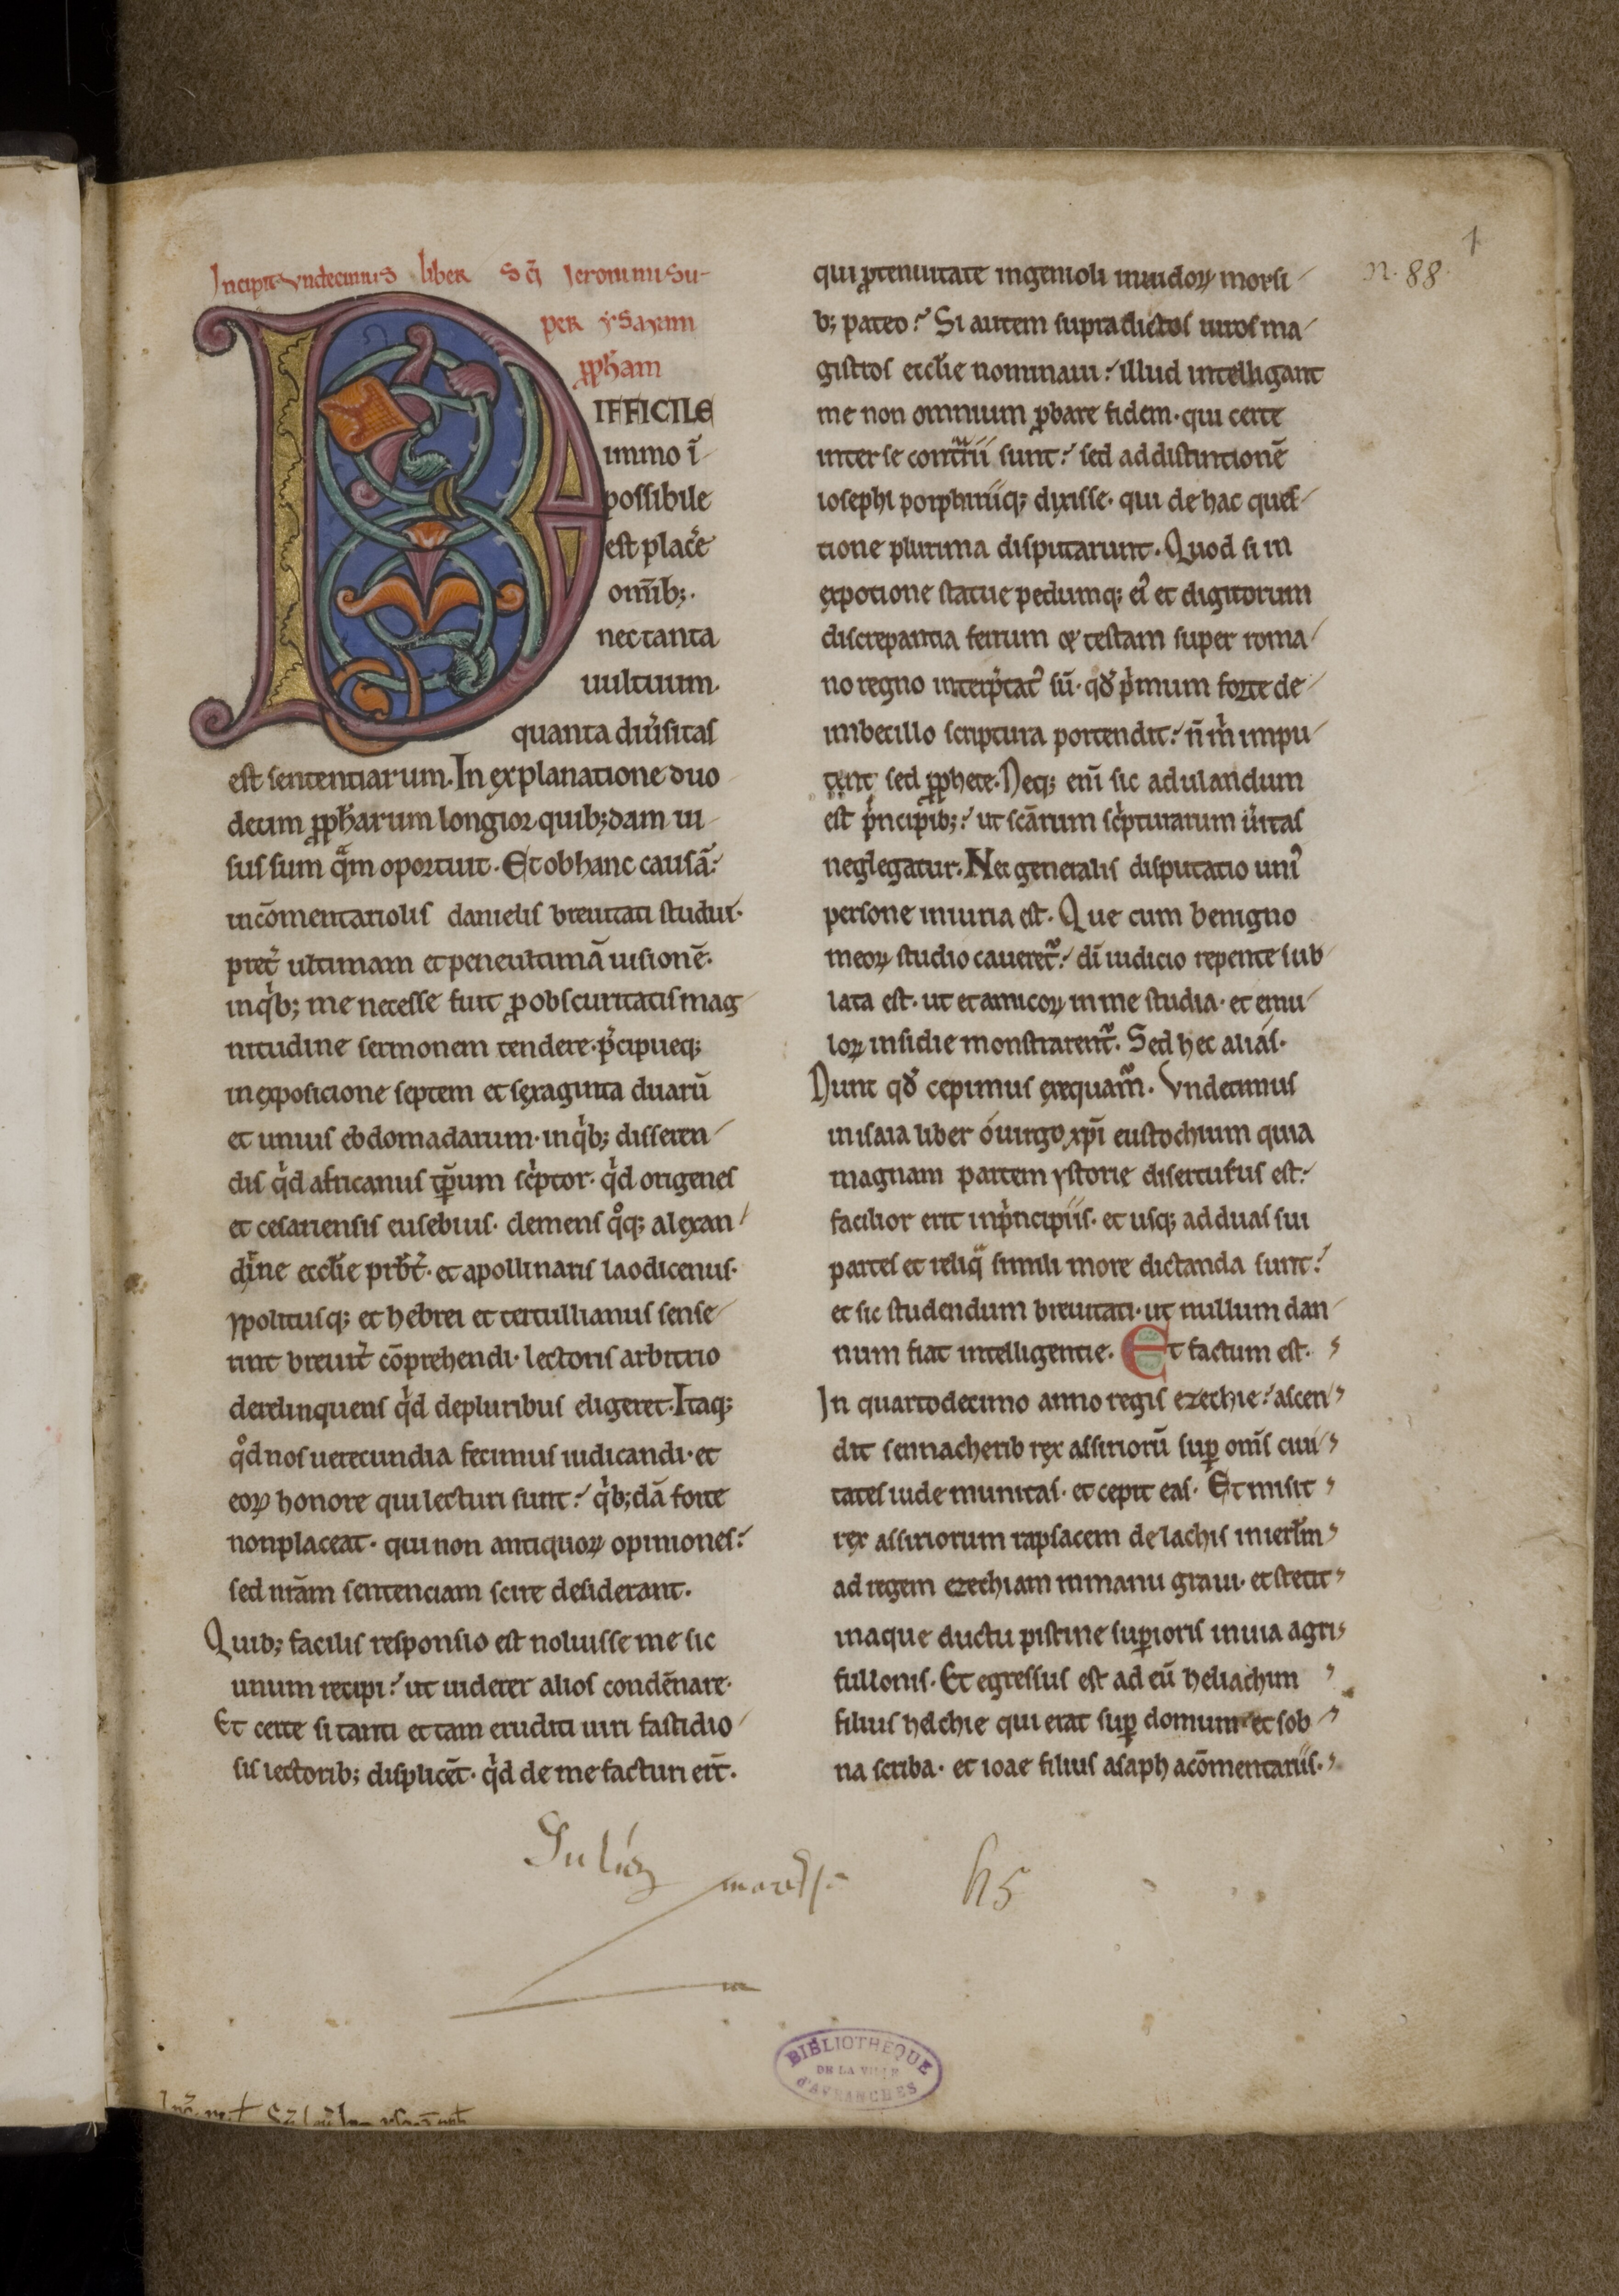 Incipit undecimus liber sc̄i Ieronimi su-
per ysayam
ꝓph̄am
DIFFICILE
immo ī
possibile
est plac̄e
om̄ib;.
nec tanta
uultuum.
quanta diu̓sitas
est sententiarum. In explanatione duo
decim ꝓph̄arum longior quib;dam ui
sus sum qͣm oportuit. Et ob hanc causā:
in cōmentariolis danielis breuitati studui.
pret̓ ultimam et peneultimā uisionē.
in qⁱb; me necesse fuit ꝓ obscuritatis mag
nitudine sermonem tendere. p̓cipueq;
in expositione septem et sexaginta duarū
et unius ebdomadarum. in qⁱb; disseren
dis qⁱd africanus tp̄rum sc̓ptor. qⁱd origenes
et cesariensis eusebius. clemens qͦq; alexan
dⁱne eccl̄ie prb̄t̓. et apollinaris laodicenus.
ypolitusq; et hebrei et tertullianus sense
runt breuit̓ cōprehendi. lectoris arbitrio
derelinquens qⁱd de pluribus eligeret. Itaq;
qͦd nos uerecundia fecimus iudicandi. et
eoꝝ honore qui lecturi sunt: qⁱb;dā forte
non placeat. qui non antiquoꝝ opiniones:
sed nr̄am sentenciam scire desiderant.
Quib; facilis responsio est noluisse me sic
unum recipi: ut uiderer alios condēnare.
Et certe si tanti et tam eruditi uiri fastidio
sis lectorib; displicēt. qⁱd de me facturi er̄t.
qui ꝓ tenuitate ingenioli inuidoꝝ morsi
b; pateo? Si autem supradictos uiros ma
gistros eccl̄ie nominaui: illud intelligant
me non omnium ꝓbare fidem. qui certe
inter se contͣrii sunt: sed ad distinctionē
iosephi porphiriiq; dixisse. qui de hac ques
tione plurima disputarunt. Quod si in
expotione statue pedumq; ei᾽ et digitorum
discrepantia ferrum et testam super roma
no regno interp̓tat᾽ sū. qd̓ pⁱmum forte de
imbecillo scriptura portendit: n̄ mⁱ impu
tent sed ꝓphete. Neq; eni᷑ sic adulandum
est pⁱncipib;: ut scārum sc̓pturarum u̓itas
neglegatur. Nec generalis disputatio uni᾽
persone iniuria est. Que cum benigno
meoꝝ studio caueret᷑: di᷑ iudicio repente sub
lata est. ut et amicoꝝ in me studia. et emu
loꝝ insidie monstrarent᷑. Sed hec alias.
Nunc qd̓ cepimus exequam᷑. Undecimus
in isaia liber o uirgo xp̄i eustochium quia
magnam partem ystorie diserturus est:
facilior erit in pⁱncipiis. et usq; ad duas sui
partes et reliqͣ simili more dictanda sunt:
et sic studendum breuitati. ut nullum dan
num fiat intelligentie. Et factum est.
In quartodecimo anno regis ezechie: ascen
dit sennacherib rex assiriorū suꝑ om̄s ciui
tates iude munitas. et cepit eas. Et misit
rex assiriorum rapsacem de lachis in ierl̄m
ad regem ezechiam in manu graui. et stetit
in aque ductu piscine suꝑioris in uia agri
fullonis. Et egressus est ad eū heliachim
filius helchie qui erat suꝑ domum et sob
na scriba. et ioae filius asaph a cōmentariis.
n. 88.
1
h5
BIBLIOTHEQUE
DE LA VILLE
D'AVRANCHES